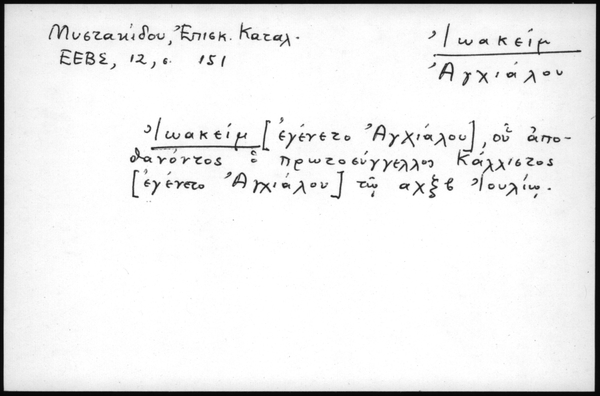 Μυστακίδου, Ἐπισκ. Καταλ.
ΕΕΒΣ, 12, σ. 151
Ἰωακείμ
Ἀγχιάλου
Ἰωακείμ [ἐγένετο Ἀγχιάλου], οὗ ἀπο-
θανόντος ὁ πρωτοσύγγελλος Κάλλιστος
[ἐγένετο Ἀγχιάλου] τῷ αχξβ Ἰουλίῳ.